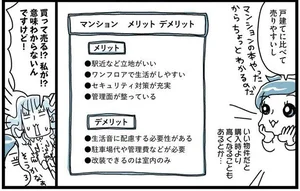 戸建てに比べて
売りやすいし
マンションの本やったら
からちょっとわかるのだ
いい物件だと
購入時より
高くなることも
あるとか…
マンション メリット デメリット
メリット
●駅近など立地がいい
●ワンフロアで生活がしやすい
●セキュリティ対策が充実
●管理面が整っている
デメリット
●生活音に配慮する必要性がある
●駐車場代や管理費などが必要
●改装できるのは室内のみ
買って売る?私が!?
意味わからないん
ですけど!